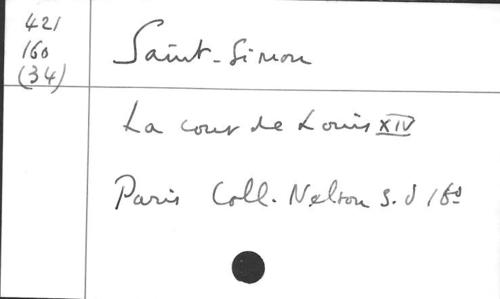 421
160
(34)
Saint-Simon
La cour de Louis XIV
Paris Coll. Nelson s. d